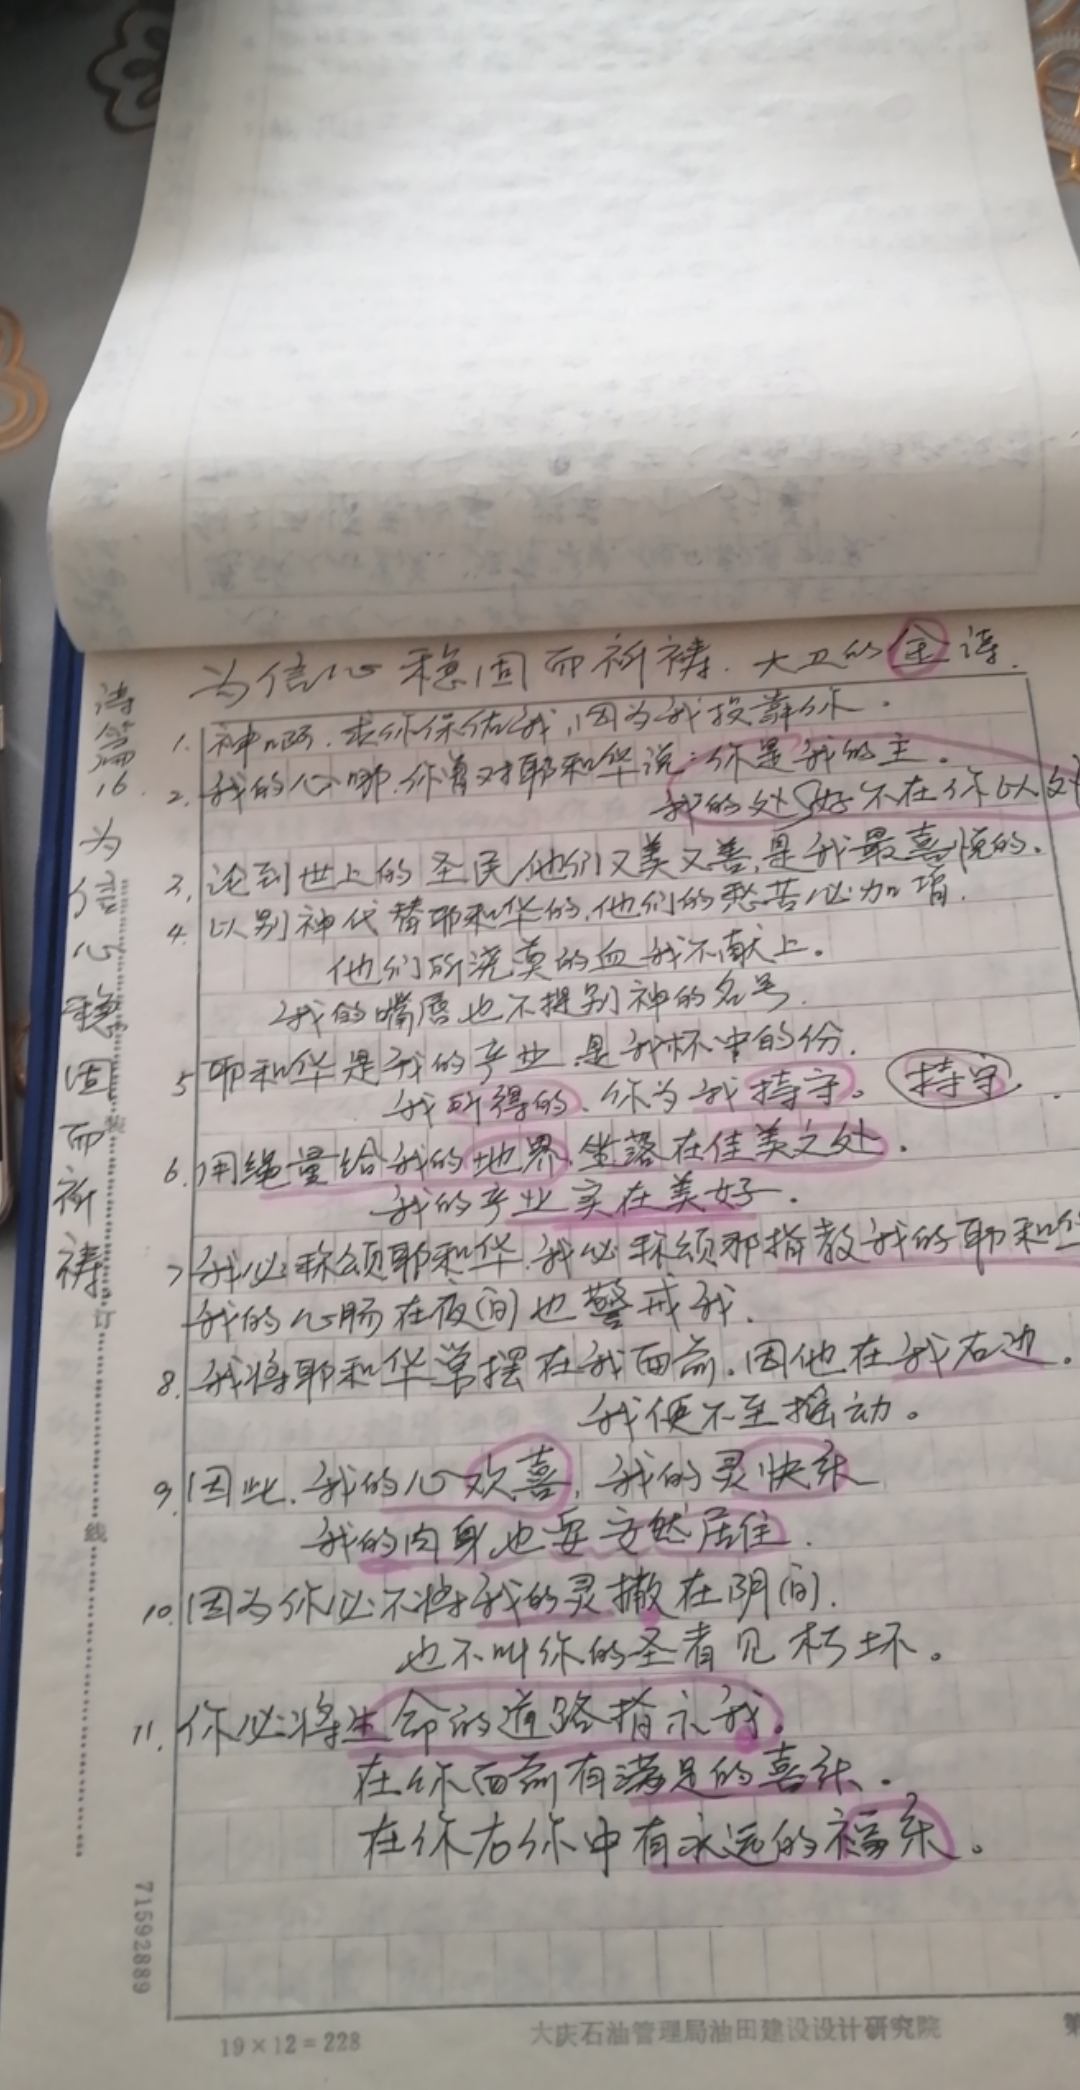 为信心稳固而祈祷.大卫的金诗.
诗篇16.为信心稳固而祈祷
1. 神啊.求你保佑我,因为我投靠你.
2. 我的心哪.你曾对耶和华说:你是我的主.
我的好处不在你以处
3, 论到世上的圣民,他们又美又善,是我最喜悦的.
4. 以别神代替耶和华的.他们的愁苦必加增.
他们所浇奠的血我不献上。
我的嘴唇也不提别神的名号.
5 耶和华是我的产业.是我杯中的份.
我所得的、你为我持守。 持守.
6. 用绳量给我的地界,坐落在佳美之处.
我的产业实在美好.
7 我必称颂耶和华.我必称颂那指教我的耶和华
我的心肠在夜间也警戒我.
8. 我将耶和华常摆在我面前.因他在我右边.
我便不至摇动。
9. 因此.我的心欢喜,我的灵快乐
我的肉身也要安然居住.
10. 因为你必不将我的灵撒在阴间.
也不叫你的圣者见朽坏。
11. 你必将生命的道路指示我.
在你面前有满足的喜乐.
在你右你中有永远的福乐。
装
订
线
71592889
19×12=228
大庆石油管理局油田建设设计研究院
第